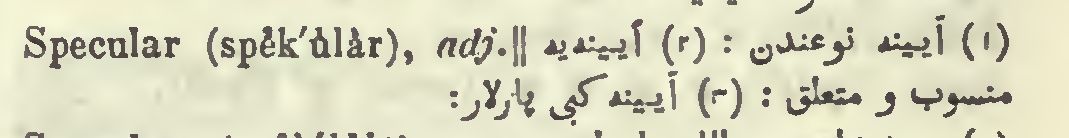 Specular (spĕk′ŭlȧr), adj. || (١) آیینه نوعندن : (٢) آیینه‌یه
منسوب و متعلق : (٣) آیینه کبی پارلار :